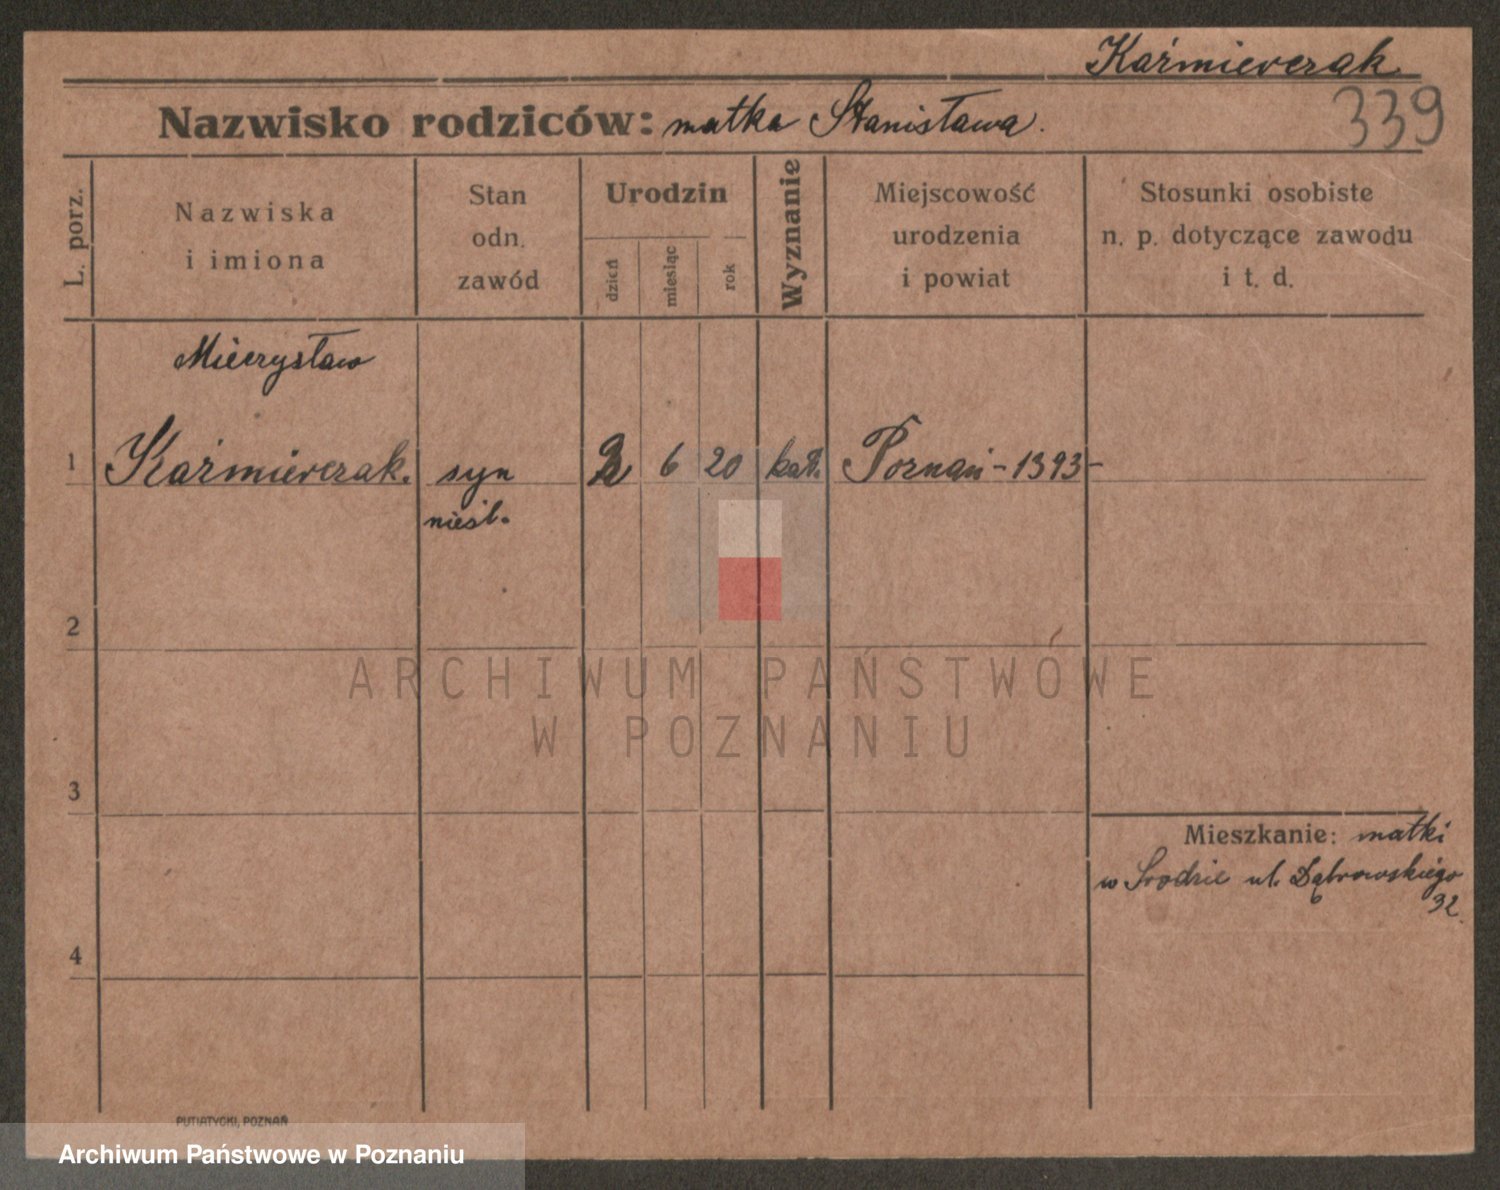 Kaźmierczak
Nazwisko rodziców: matka Stanisława.
339
L. porz.
Nazwiska
i imiona
Stan
odn.
zawód
Urodzin
dzień
miesiąc
rok
Wyznanie
Miejscowość
urodzenia
i powiat
Stosunki osobiste
n. p. dotyczące zawodu
i t. d.
Mieczysław
1 Kaźmierczak. syn 6 20 kat. Poznań - 1393 -
nieśl.
2
ARCHIWUM PAŃSTWOWE
W POZNANIU
3
Mieszkanie: matki
w Środzie ul. Dąbrowskiego
32.
4
PUTIATYCKI, POZNAŃ
Archiwum Państwowe w Poznaniu